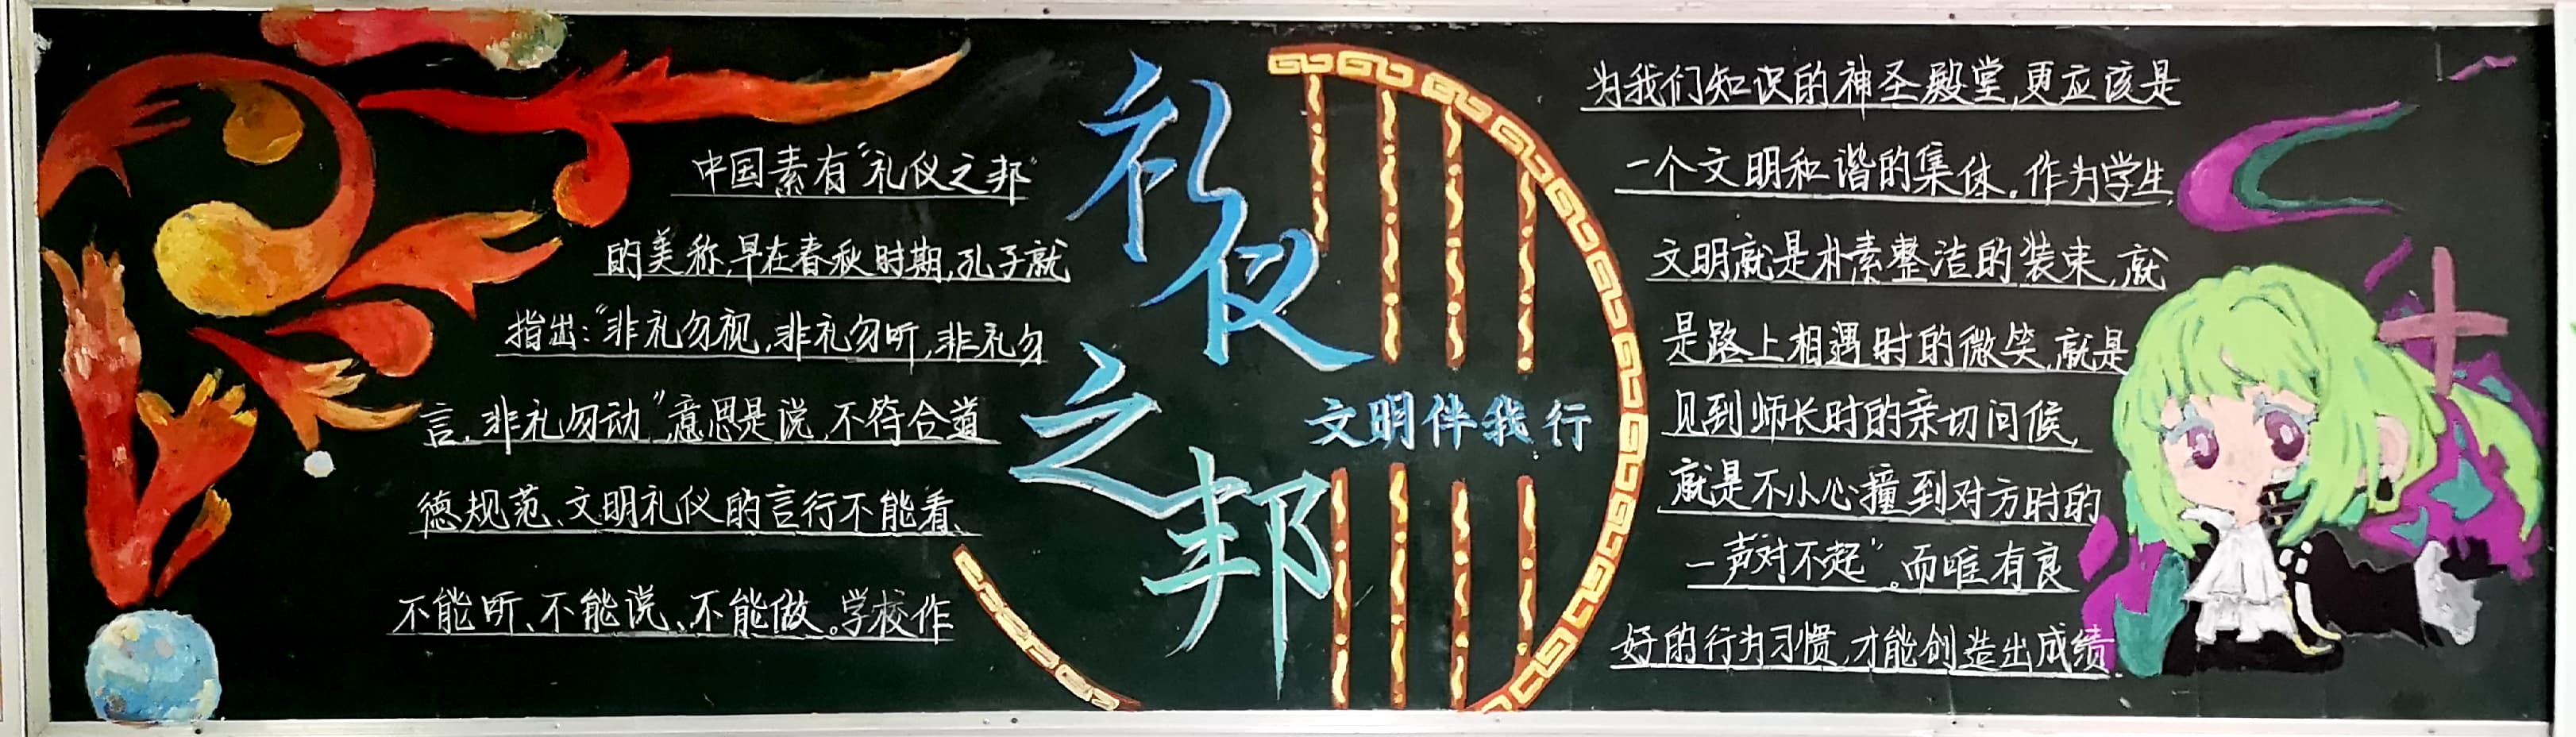 中国素有“礼仪之邦”
的美称,早在春秋时期,孔子就
指出:“非礼勿视,非礼勿听,非礼勿
言,非礼勿动”,意思是说,不符合道
德规范、文明礼仪的言行不能看、
不能听、不能说、不能做。学校作
礼仪
之邦
文明伴我行
为我们知识的神圣殿堂,更应该是
一个文明和谐的集体。作为学生,
文明就是朴素整洁的装束,就
是路上相遇时的微笑,就是
见到师长时的亲切问候,
就是不小心撞到对方时的
一声对不起”。而唯有良
好的行为习惯,才能创造出成绩.